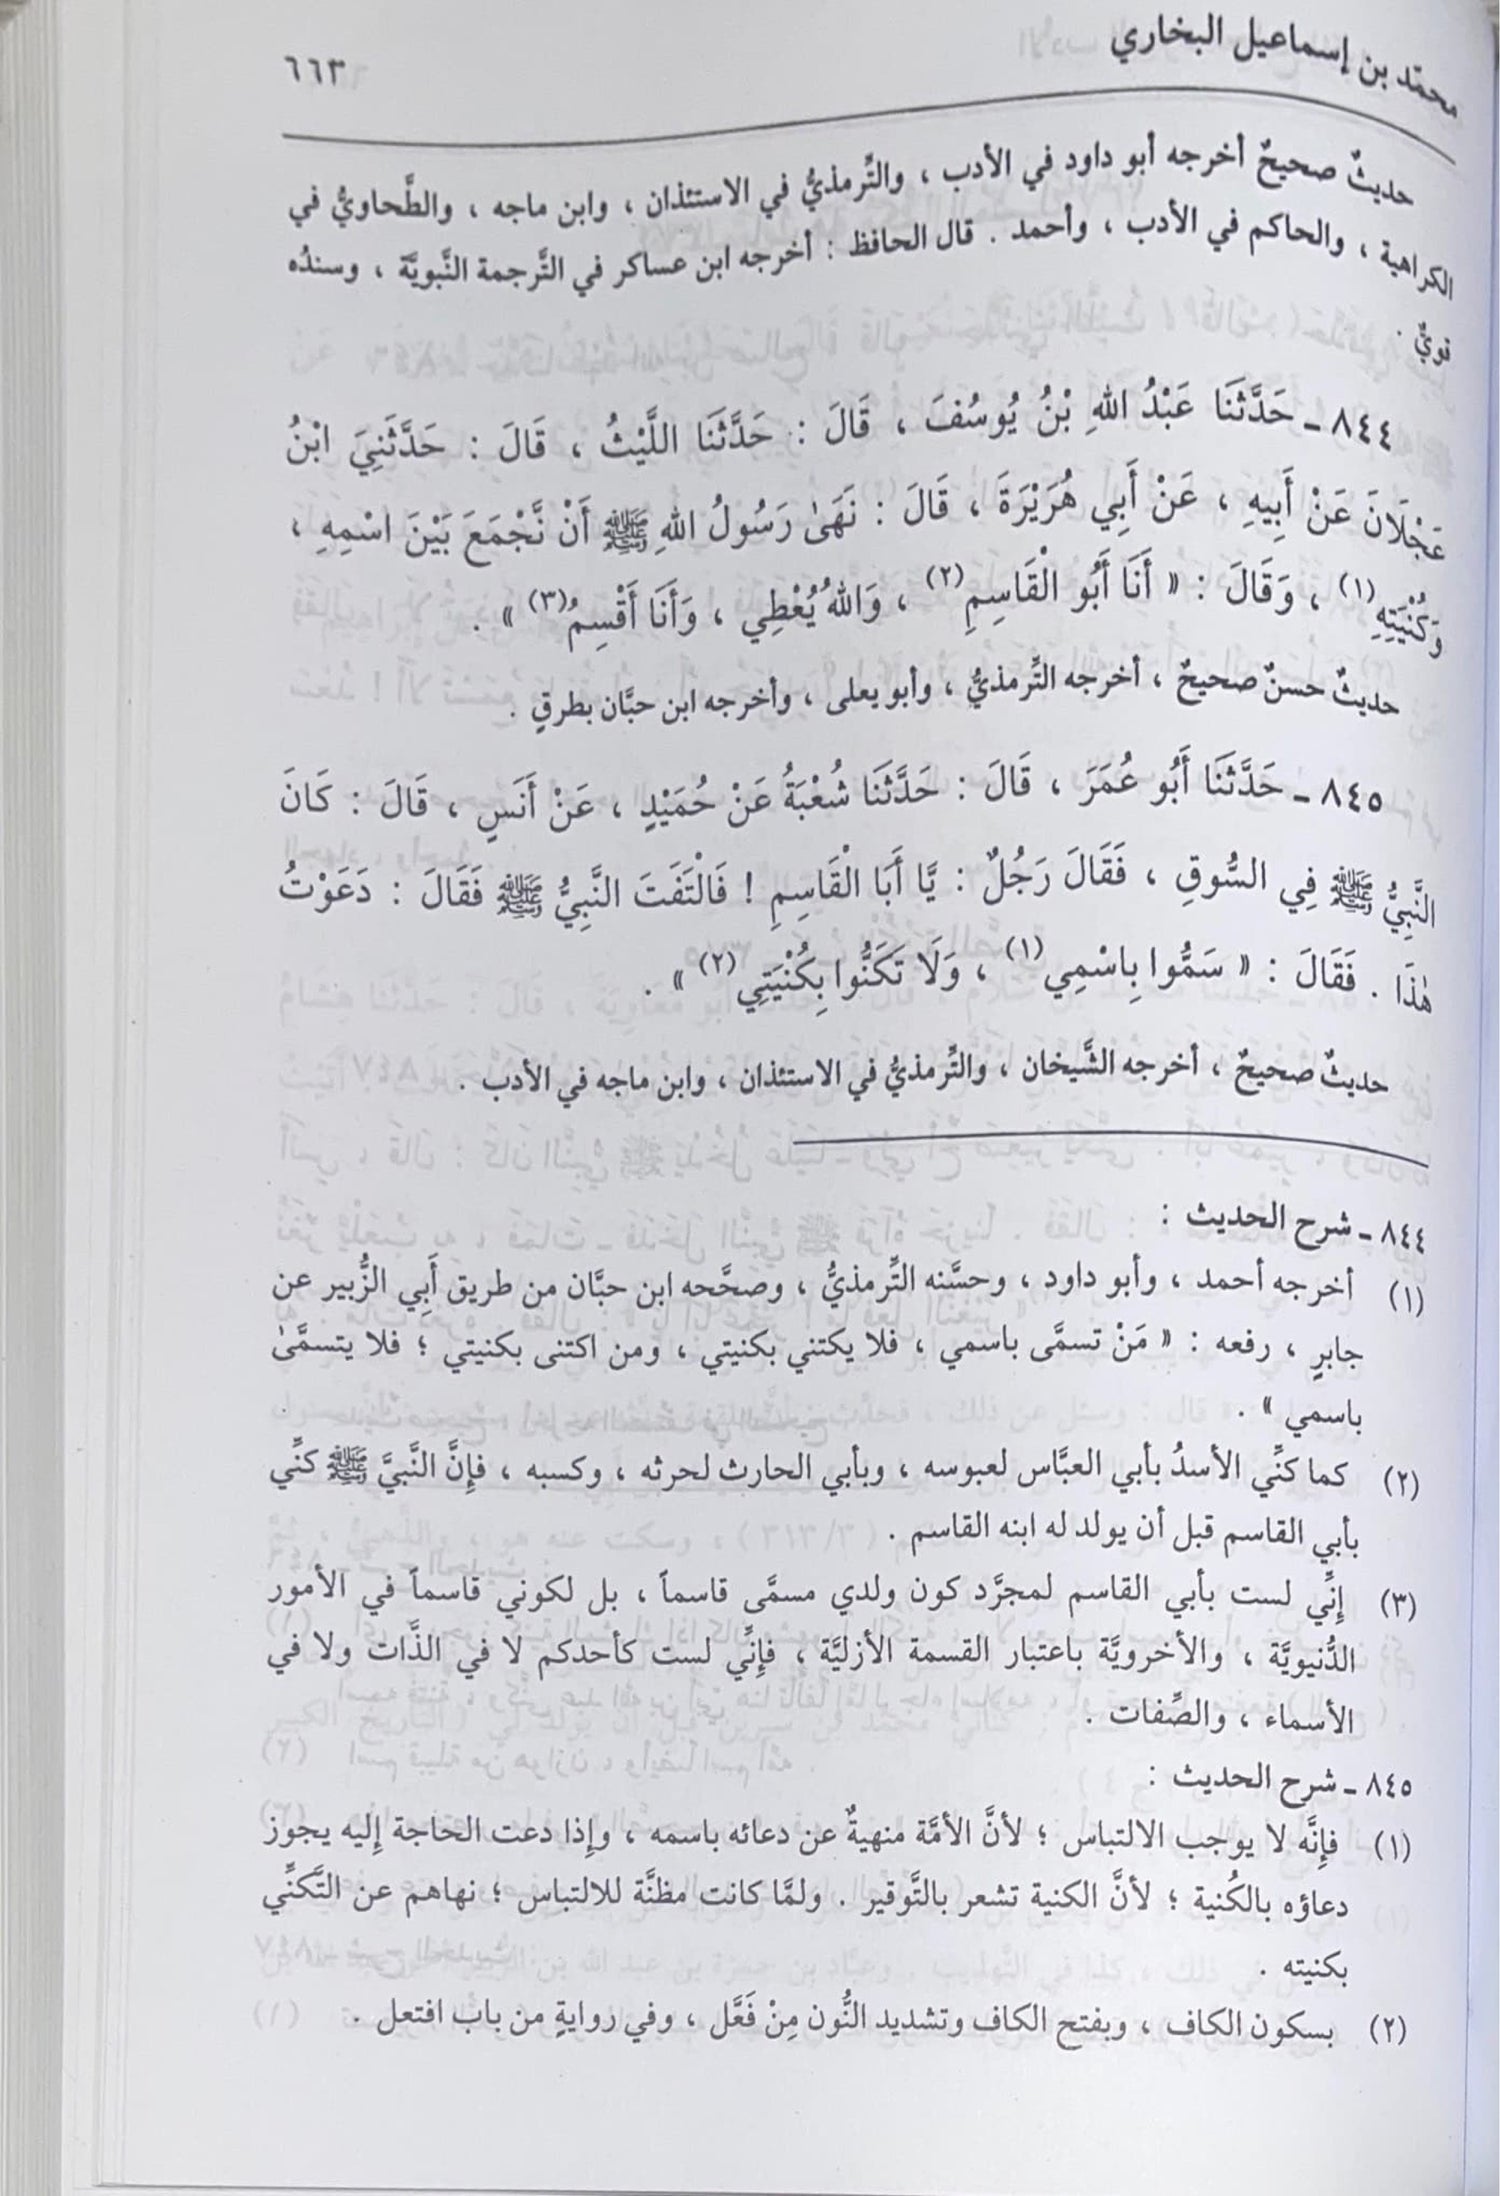 محمّد بن إسماعيل البخاري
٦٦٣
حديثٌ صحيحٌ أخرجه أبو داود في الأدب ، والتِّرمذيُّ في الاستئذان ، وابن ماجه ، والطَّحاويُّ في
الكراهية ، والحاكم في الأدب ، وأحمد . قال الحافظ : أخرجه ابن عساكر في التَّرجمة النَّبويَّة ، وسندُه
قويٌّ .
٨٤٤ ـ حَدَّثَنَا عَبْدُ اللهِ بْنُ يُوسُفَ ، قَالَ : حَدَّثَنَا اللَّيْثُ ، قَالَ : حَدَّثَنِيَ ابْنُ
عَجْلَانَ عَنْ أَبِيهِ ، عَنْ أَبِي هُرَيْرَةَ ، قَالَ : نَهَىٰ رَسُولُ اللهِ ﷺ أَنْ نَّجْمَعَ بَيْنَ اسْمِهِ ،
وَكُنْيَتِهِ(١) ، وَقَالَ : « أَنَا أَبُو الْقَاسِمِ(٢) ، وَاللهُ يُعْطِي ، وَأَنَا أَقْسِمُ(٣) » .
حديثٌ حسنٌ صحيحٌ ، أخرجه التِّرمذيُّ ، وأبو يعلى ، وأخرجه ابن حبَّان بطرقٍ .
٨٤٥ ـ حَدَّثَنَا أَبُو عُمَرَ ، قَالَ : حَدَّثَنَا شُعْبَةُ عَنْ حُمَيْدٍ ، عَنْ أَنَسٍ ، قَالَ : كَانَ
النَّبِيُّ ﷺ فِي السُّوقِ ، فَقَالَ رَجُلٌ : يَّا أَبَا الْقَاسِمِ ! فَالْتَفَتَ النَّبِيُّ ﷺ فَقَالَ : دَعَوْتُ
هٰذَا . فَقَالَ : « سَمُّوا بِاسْمِي(١) ، وَلَا تَكَنُّوا بِكُنْيَتِي(٢) » .
حديثٌ صحيحٌ ، أخرجه الشَّيخان ، والتِّرمذيُّ في الاستئذان ، وابن ماجه في الأدب .
٨٤٤ ـ شرح الحديث :
(١) أخرجه أحمد ، وأبو داود ، وحسَّنه التِّرمذيُّ ، وصحَّحه ابن حبَّان من طريق أَبِي الزُّبير عن
جابرٍ ، رفعه : « مَنْ تسمَّى باسمي ، فلا يكتني بكنيتي ، ومن اكتنى بكنيتي ؛ فلا يتسمَّىٰ
باسمي » .
(٢) كما كنِّي الأسدُ بأبي العبَّاس لعبوسه ، وبأبي الحارث لحرثه ، وكسبه ، فإِنَّ النَّبيَّ ﷺ كنِّي
بأبي القاسم قبل أن يولد له ابنه القاسم .
(٣) إِنِّي لست بأبي القاسم لمجرَّد كون ولدي مسمَّى قاسماً ، بل لكوني قاسماً في الأمور
الدُّنيويَّة ، والأخرويَّة باعتبار القسمة الأزليَّة ، فإِنِّي لست كأحدكم لا في الذَّات ولا في
الأسماء ، والصِّفات .
٨٤٥ ـ شرح الحديث :
(١) فإِنَّه لا يوجب الالتباس ؛ لأنَّ الأمَّة منهيةٌ عن دعائه باسمه ، وإِذا دعت الحاجة إِليه يجوز
دعاؤه بالكُنية ؛ لأنَّ الكنية تشعر بالتَّوقير . ولمَّا كانت مظنَّة للالتباس ؛ نهاهم عن التَّكنِّي
بكنيته .
(٢) بسكون الكاف ، وبفتح الكاف وتشديد النُّون مِنْ فَعَّل ، وفي روايةٍ من باب افتعل .